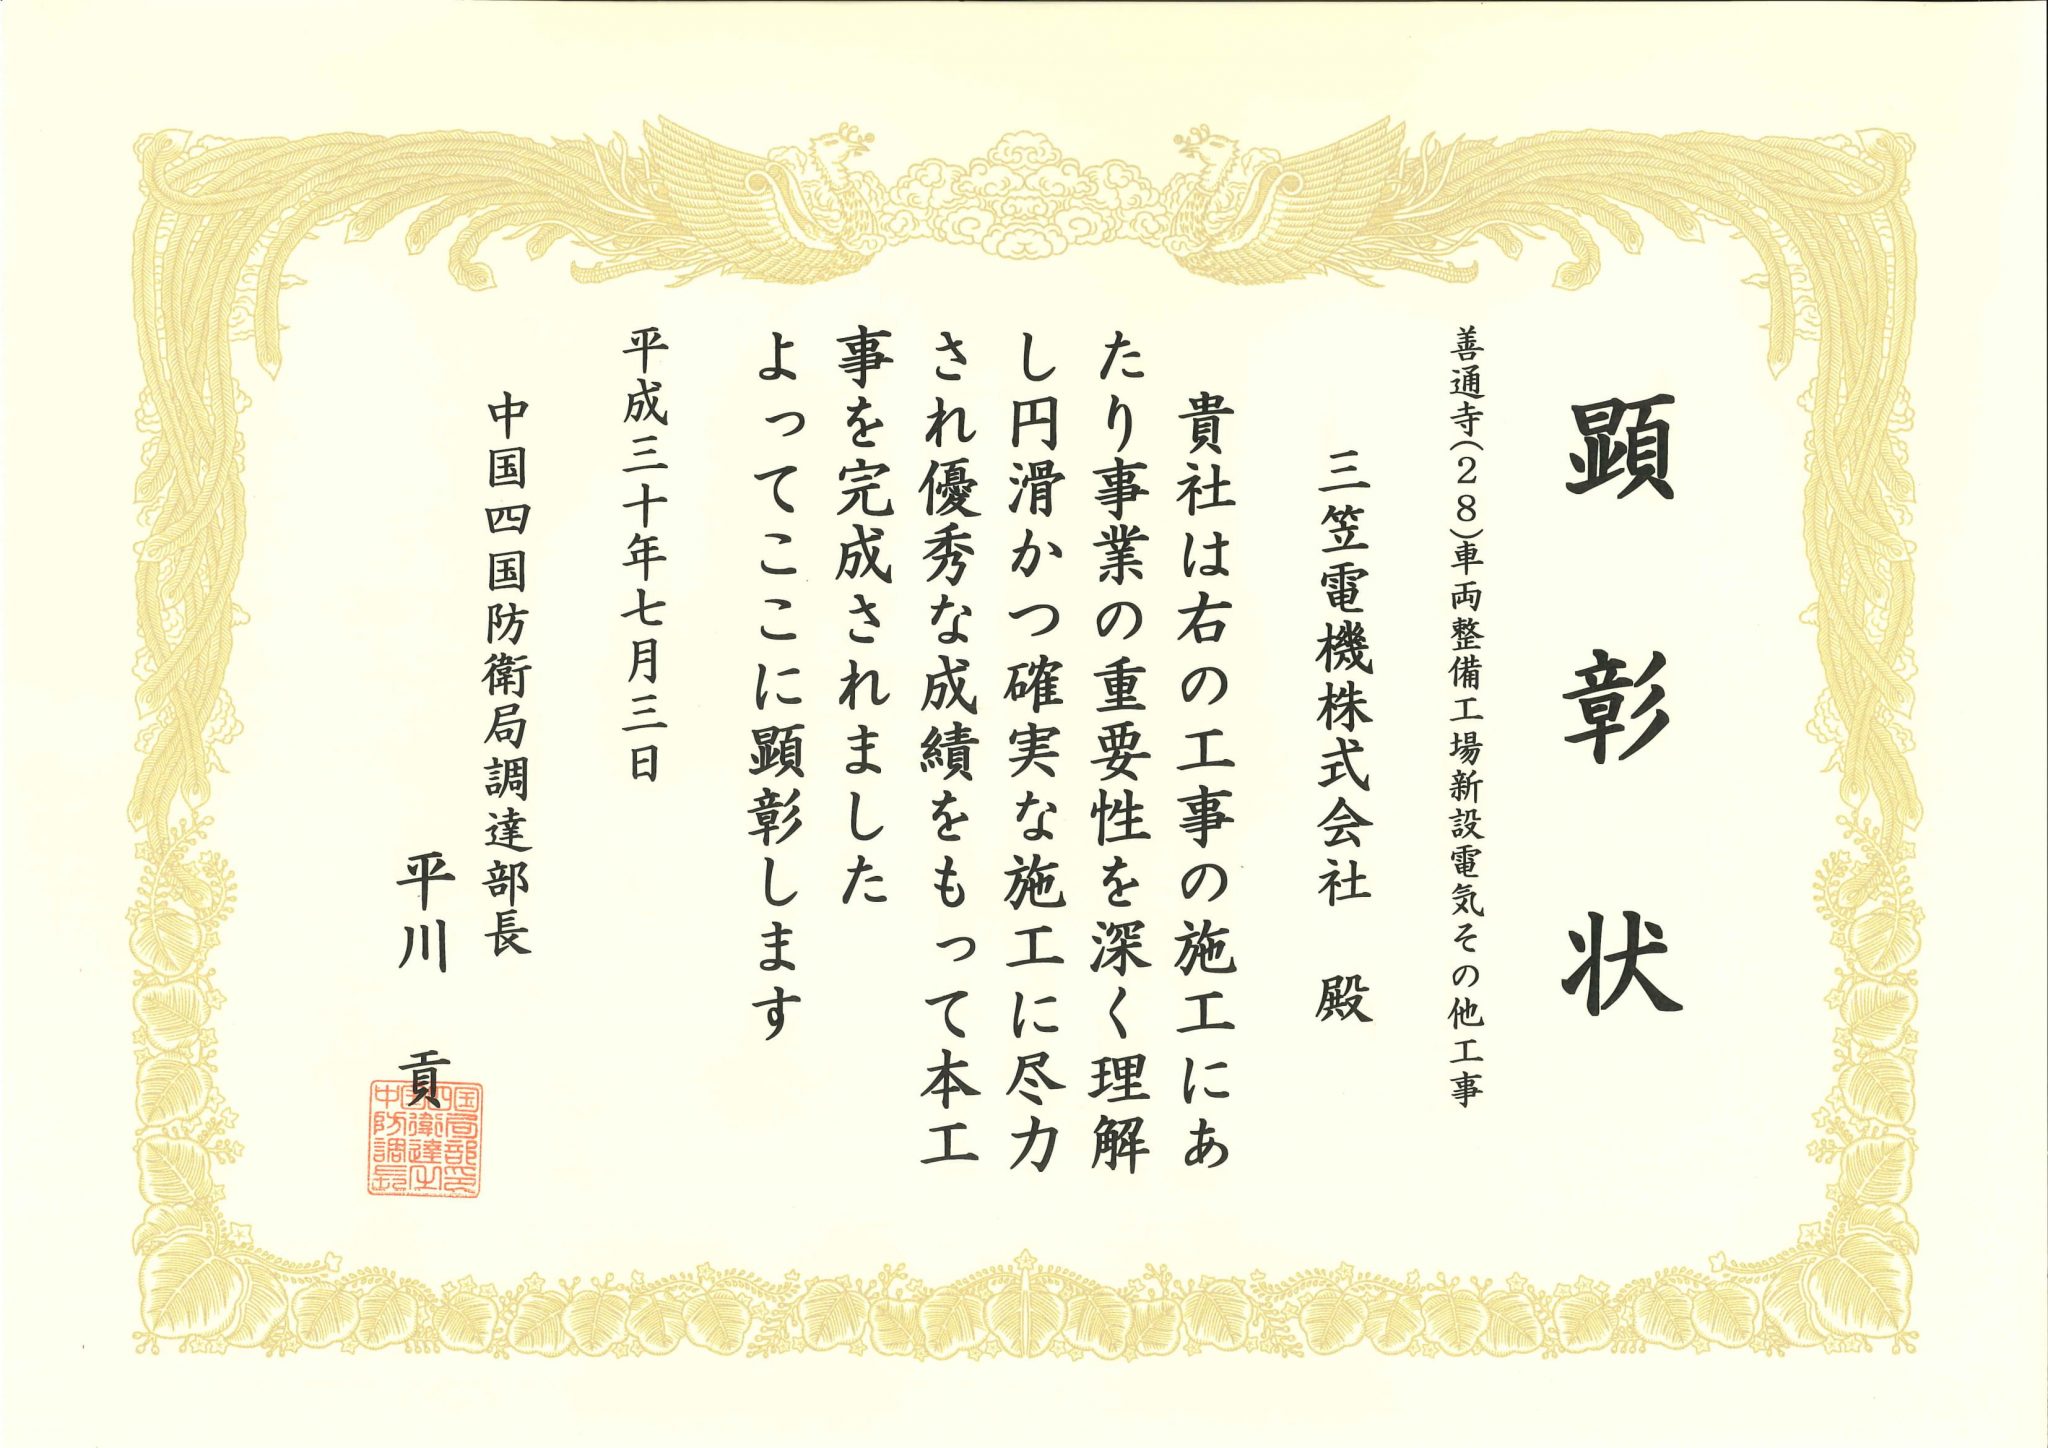 顕彰状
善通寺(28)車両整備工場新設電気その他工事
三笠電機株式会社 殿
貴社は右の工事の施工にあ
たり事業の重要性を深く理解
し円滑かつ確実な施工に尽力
され優秀な成績をもって本工
事を完成されました
よってここに顕彰します
平成三十年七月三日
中国四国防衛局調達部長
平川 貢
中国四国
防衛局
調達部
長之印